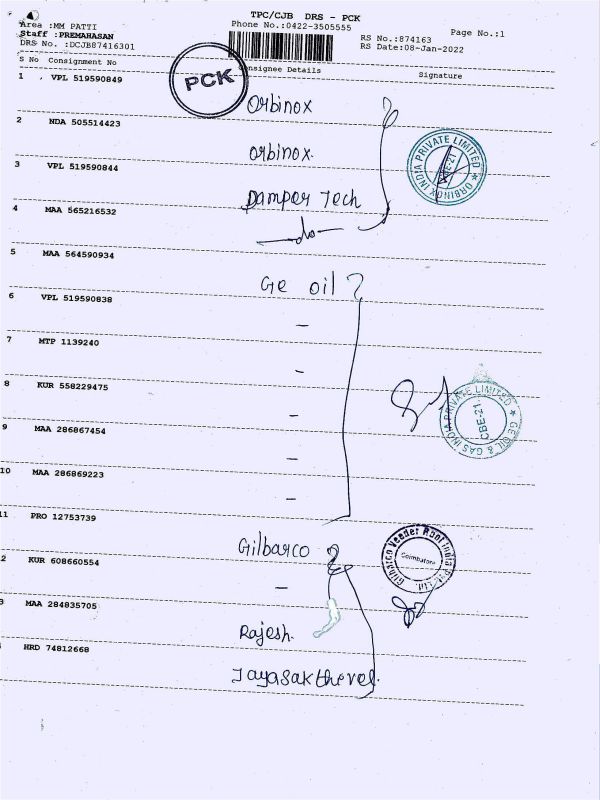 TPC/CJB DRS - PCK
Area :MM PATTI
Phone No.:0422-3505555
Page No.:1
Staff :PREMAHASAN
RS No.:874163
DRS No. :DCJB87416301
RS Date:08-Jan-2022
S No Consignment No
Consignee Details
Signature
PCK
1 VPL 519590849
Orbinox
2 NDA 505514423
Orbinox.
ORBINOX INDIA PRIVATE LIMITED
CBE-21
3 VPL 519590844
Damper Tech
4 MAA 565216532
—do—
5 MAA 564590934
Ge oil
6 VPL 519590838
–
7 MTP 1139240
–
8 KUR 558229475
–
GE OIL & GAS INDIA PRIVATE LIMITED
CBE-21
9 MAA 286867454
–
10 MAA 286869223
–
11 PRO 12753739
Gilbarco
Gilbarco Veeder Root India Pvt. Ltd.
Coimbatore
2 KUR 608660554
–
3 MAA 284835705
Rajesh.
HRD 74812668
Jayasakthevel.